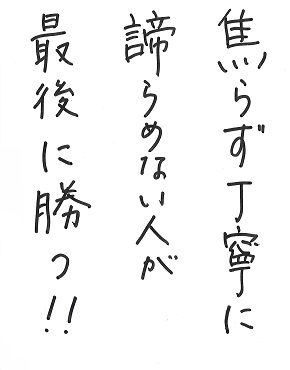 焦らず丁寧に
諦らめない人が
最後に勝つ!!